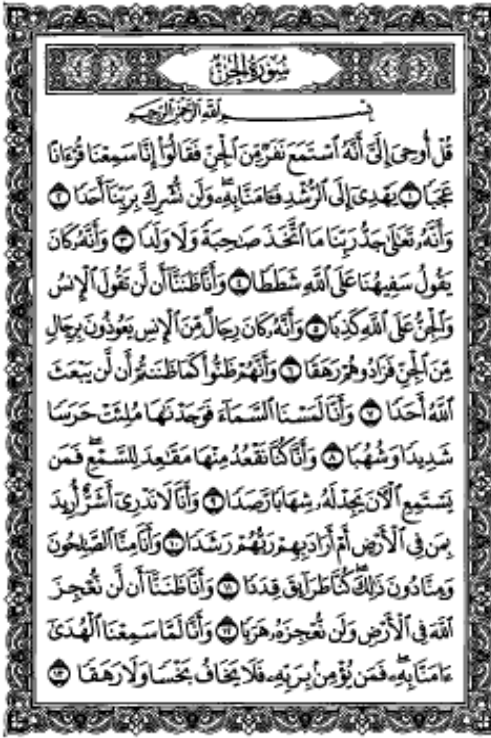 سُورَةُ الجِنِّ
بِسْمِ اللَّهِ الرَّحْمَٰنِ الرَّحِيمِ
قُلْ أُوحِيَ إِلَيَّ أَنَّهُ ٱسْتَمَعَ نَفَرٌ مِّنَ ٱلْجِنِّ فَقَالُوٓا۟ إِنَّا سَمِعْنَا قُرْءَانًا
عَجَبًا ١ يَهْدِىٓ إِلَى ٱلرُّشْدِ فَـَٔامَنَّا بِهِۦ وَلَن نُّشْرِكَ بِرَبِّنَآ أَحَدًا ٢
وَأَنَّهُۥ تَعَٰلَىٰ جَدُّ رَبِّنَا مَا ٱتَّخَذَ صَٰحِبَةً وَلَا وَلَدًا ٣ وَأَنَّهُۥ كَانَ
يَقُولُ سَفِيهُنَا عَلَى ٱللَّهِ شَطَطًا ٤ وَأَنَّا ظَنَنَّآ أَن لَّن تَقُولَ ٱلْإِنسُ
وَٱلْجِنُّ عَلَى ٱللَّهِ كَذِبًا ٥ وَأَنَّهُۥ كَانَ رِجَالٌ مِّنَ ٱلْإِنسِ يَعُوذُونَ بِرِجَالٍ
مِّنَ ٱلْجِنِّ فَزَادُوهُمْ رَهَقًا ٦ وَأَنَّهُمْ ظَنُّوا۟ كَمَا ظَنَنتُمْ أَن لَّن يَبْعَثَ
ٱللَّهُ أَحَدًا ٧ وَأَنَّا لَمَسْنَا ٱلسَّمَآءَ فَوَجَدْنَٰهَا مُلِئَتْ حَرَسًا
شَدِيدًا وَشُهُبًا ٨ وَأَنَّا كُنَّا نَقْعُدُ مِنْهَا مَقَٰعِدَ لِلسَّمْعِ ۖ فَمَن
يَسْتَمِعِ ٱلْـَٔانَ يَجِدْ لَهُۥ شِهَابًا رَّصَدًا ٩ وَأَنَّا لَا نَدْرِىٓ أَشَرٌّ أُرِيدَ
بِمَن فِى ٱلْأَرْضِ أَمْ أَرَادَ بِهِمْ رَبُّهُمْ رَشَدًا ١٠ وَأَنَّا مِنَّا ٱلصَّٰلِحُونَ
وَمِنَّا دُونَ ذَٰلِكَ ۖ كُنَّا طَرَآئِقَ قِدَدًا ١١ وَأَنَّا ظَنَنَّآ أَن لَّن نُّعْجِزَ
ٱللَّهَ فِى ٱلْأَرْضِ وَلَن نُّعْجِزَهُۥ هَرَبًا ١٢ وَأَنَّا لَمَّا سَمِعْنَا ٱلْهُدَىٰٓ
ءَامَنَّا بِهِۦ ۖ فَمَن يُؤْمِنۢ بِرَبِّهِۦ فَلَا يَخَافُ بَخْسًا وَلَا رَهَقًا ١٣